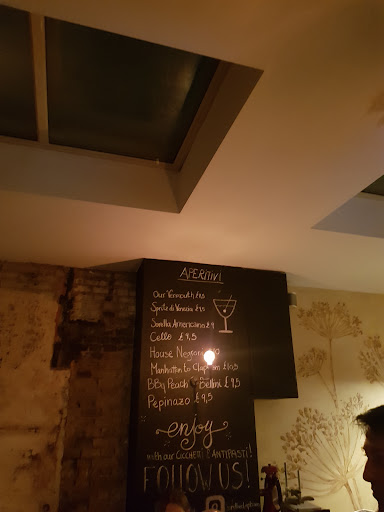 APERITIVI
Our Vermouth
Spritz di Venezia
Sorella Americano £9
Cello £9,5
House Negroni
Manhattan to Clapham £10,5
BBy Peach Bellini £9,5
Pepinazo £9,5
enjoy
with our CICCHETTI & ANTIPASTI!
FOLLOW US!